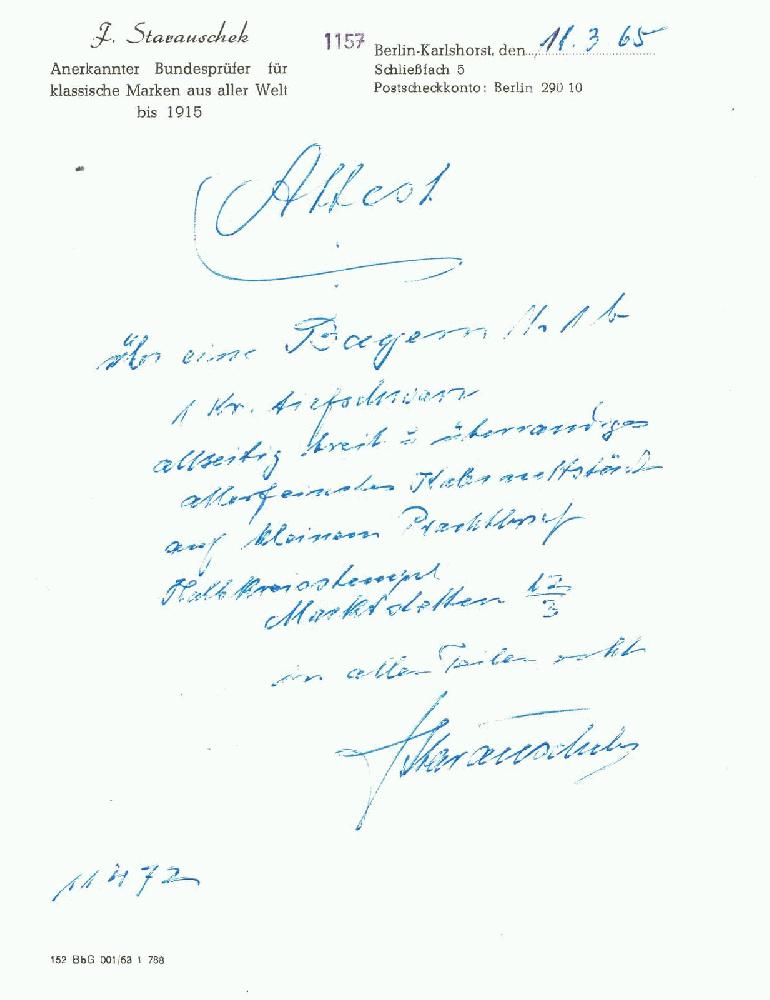 J. Starauschek
Anerkannter Bundesprüfer für
klassische Marken aus aller Welt
bis 1915
1157
Berlin-Karlshorst, den 11. 3 65
Schließfach 5
Postscheckkonto: Berlin 290 10
Attest
über eine Bayern N. 1 b
1 Kr. tiefschwarz
allseitig breit überrandiges
allerfeinstes Kabinettstück
auf kleinem Prachtbrief
Halbkreisstempel
Marktstetten 12/3
in allen Teilen echt
Starauschek
11472
152 BbG 001/53 1 768